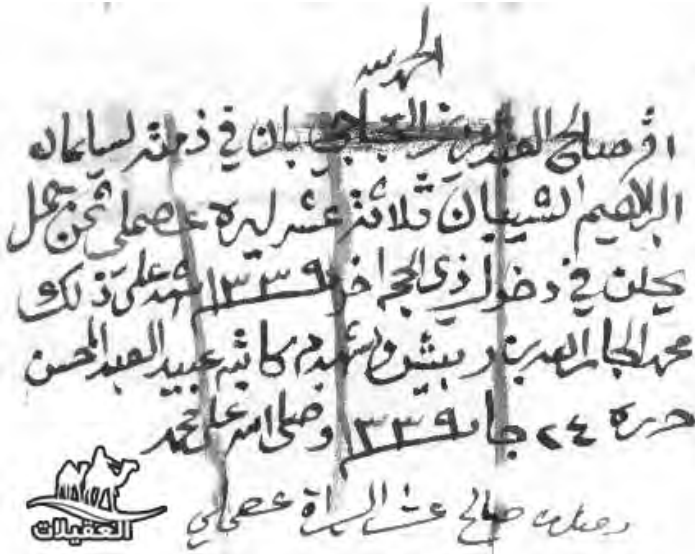 الحمد لله
اقر صالح العبدالعزيز بان في ذمته لسليمان
البراهيم الشيبان ثلاثة عشر ليره عصملي ثمن جمل
يحلن في دخول ذي الحجه اخر ١٣٣٩ شهد على ذلك
محمد الجار الله بن ربيش وشهد به كاتبه عبيد العبدالمحسن
حرره ٢٤ جا ١٣٣٩ وصلى الله على محمد
صالح عشر عصملي
العقيلات